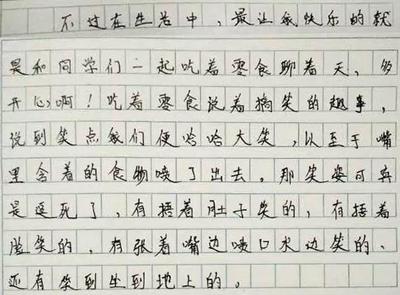 不过在生活中，最让我快乐的就
是和同学们一起吃着零食聊着天，多
开心啊！吃着零食说着搞笑的趣事，
说到笑点我们便哈哈大笑，以至于嘴
里含着的食物喷了出去。那笑姿可真
是逗死了，有捂着肚子笑的，有捂着
脸笑的，有张着嘴边喷口水边笑的、
还有笑到坐到地上的。